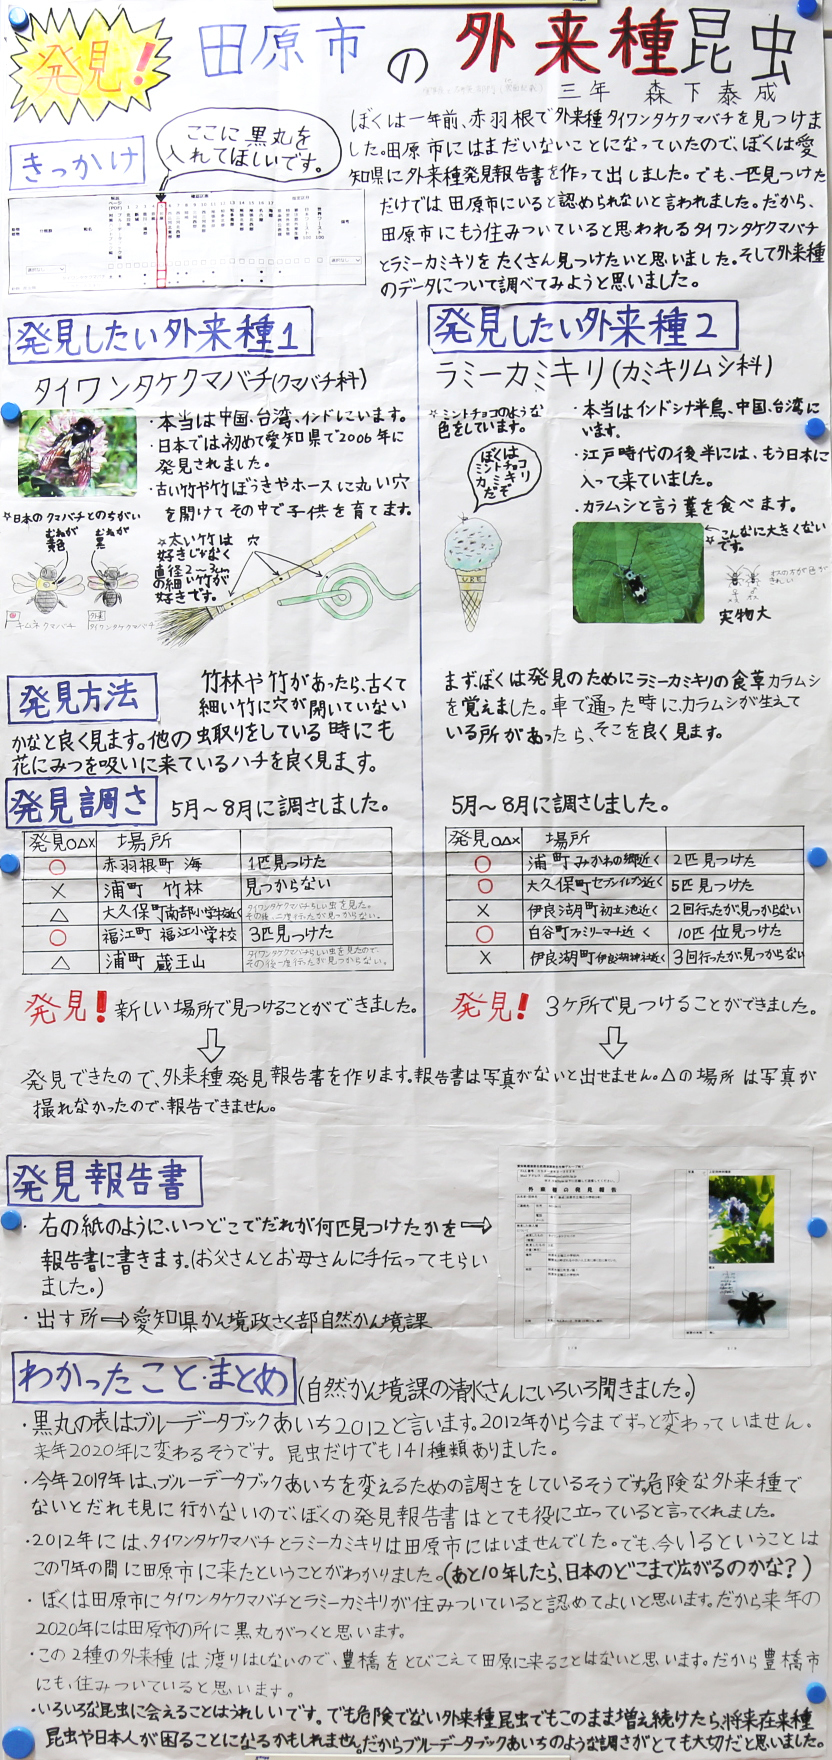 発見!
田原市の外来種昆虫
三年 森下泰成
きっかけ
ここに黒丸を
入れてほしいです。
ぼくは一年前、赤羽根で外来種タイワンタケクマバチを見つけま
した。田原市にはまだいないことになっていたので、ぼくは愛
知県に外来種発見報告書を作って出しました。でも、一匹見つけた
だけでは田原市にいると認められないと言われました。だから、
田原市にもう住みついていると思われるタイワンタケクマバチ
とラミーカミキリをたくさん見つけたいと思いました。そして外来種
のデータについて調べてみようと思いました。
発見したい外来種1
タイワンタケクマバチ(クマバチ科)
・本当は中国、台湾、インドにいます。
・日本では初めて愛知県で2006年に
発見されました。
・古い竹や竹ぼうきやホースに丸い穴
を開けてその中で子供を育てます。
☆日本のクマバチとのちがい
むねが
黄色
むねが
黒
キムネクマバチ
外来
タイワンタケクマバチ
☆太い竹は
好きじゃなく
直径2〜3cm
の細い竹が
好きです。
穴
発見したい外来種2
ラミーカミキリ(カミキリムシ科)
☆ミントチョコのような
色をしています。
ぼくは
ミントチョコ
カミキリ
だぞ
・本当はインドシナ半島、中国、台湾に
います。
・江戸時代の後半には、もう日本に
入って来ていました。
・カラムシと言う葉を食べます。
☆こんなに大きくない
です。
オスの方が色が
きれい
実物大
発見方法
竹林や竹があったら、古くて
細い竹に穴が開いていない
かなと良く見ます。他の虫取りをしている時にも
花にみつを吸いに来ているハチを良く見ます。
まずぼくは発見のためにラミーカミキリの食草カラムシ
を覚えました。車で通った時に、カラムシが生えて
いる所があったら、そこを良く見ます。
発見調さ
5月〜8月に調さしました。
発見○△× 場所
○ 赤羽根町 海 1匹見つけた
× 浦町 竹林 見つからない
△ 大久保町南部小学校近く タイワンタケクマバチらしい虫を見た。
その後、二度行ったが見つからない。
○ 福江町 福江小学校 3匹見つけた
△ 浦町 蔵王山 タイワンタケクマバチらしい虫を見たので、
その後一度行ったが見つからない。
5月〜8月に調さしました。
発見○△× 場所
○ 浦町みかわの郷近く 2匹見つけた
○ 大久保町セブンイレブン近く 5匹見つけた
× 伊良湖町初立池近く 2回行ったが、見つからない
○ 白谷町ファミリーマート近く 10匹位見つけた
× 伊良湖町伊良湖神社近く 3回行ったが、見つからない
発見!新しい場所で見つけることができました。
発見!3ヶ所で見つけることができました。
発見できたので、外来種発見報告書を作ります。報告書は写真がないと出せません。△の場所は写真が
撮れなかったので、報告できません。
発見報告書
・右の紙のように、いつどこでだれが何匹見つけたかを⇒
報告書に書きます。(お父さんとお母さんに手伝ってもらい
ました。)
・出す所⇒愛知県かん境政さく部自然かん境課
外来種の発見報告
わかったこと・まとめ(自然かん境課の清水さんにいろいろ聞きました。)
・黒丸の表は、ブルーデータブックあいち2012と言います。2012年から今までずっと変わっていません。
来年2020年に変わるそうです。昆虫だけでも141種類ありました。
・今年2019年は、ブルーデータブックあいちを変えるための調さをしているそうです。危険な外来種で
ないとだれも見に行かないので、ぼくの発見報告書はとても役に立っていると言ってくれました。
・2012年には、タイワンタケクマバチとラミーカミキリは田原市にはいませんでした。でも、今いるということは
この7年の間に田原市に来たということがわかりました。(あと10年したら、日本のどこまで広がるのかな?)
・ぼくは田原市にタイワンタケクマバチとラミーカミキリが住みついていると認めてよいと思います。だから来年の
2020年には田原市の所に黒丸がつくと思います。
・この2種の外来種は渡りはしないので、豊橋をとびこえて田原に来ることはないと思います。だから豊橋市
にも、住みついていると思います。
・いろいろな昆虫に会えることはうれしいです。でも危険でない外来種昆虫でもこのまま増え続けたら、将来在来種
昆虫や日本人が困ることになるかもしれません。だからブルーデータブックあいちのような調さがとても大切だと思いました。